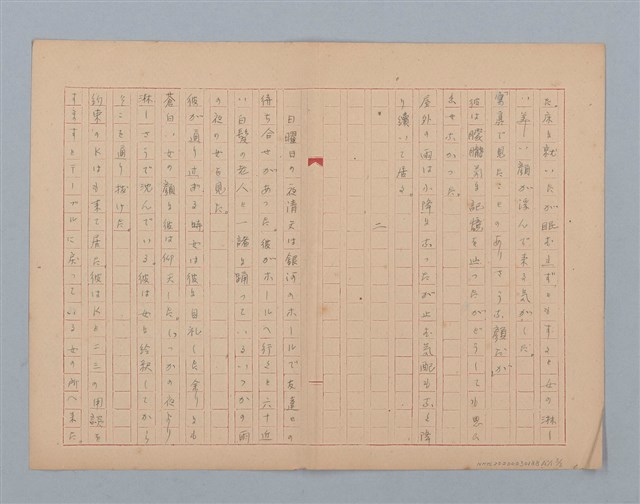 た。床に就いたが眠むれず、ともすると女の淋し
い美しい顔が浮んで来る気がした。
写真で見たことのありそうな顔だが、
彼は朦朧たる記憶を辿ったがどうしても思ひ
出せなかった。
屋外の雨は小降となったが止む気配もなく降
り續いて居る。
二
日曜日の夜清天は銀河のホールで友達との
待ち合せがあった。彼がホールへ行くと六十近
い白髪の老人と一緒に踊っているいつかの雨
の夜の女を見た。
彼が通り過ぎる時女は彼に目礼した。余りにも
蒼白い女の顔に彼は仰天した。いつかの夜より
淋しそうで沈んでいる。彼は女に会釈してから
そこを通り抜けた。
約束のKはまだ来て居た。彼はKと二三の用談を
すますとテーブルに戻っている女の所へ来た。